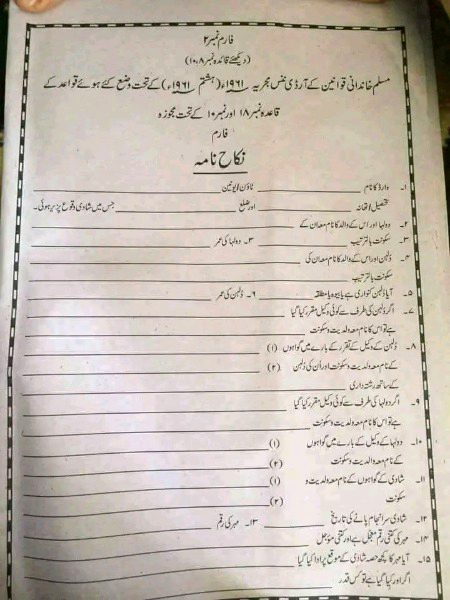 فارم نمبر ۲
(دیکھئے قاعدہ نمبر ۸،۱۰)
مسلم خاندانی قوانین کے آرڈی ننس مجریہ ۱۹۶۱ء (ہشتم ۱۹۶۱ء) کے تحت وضع کئے ہوئے قواعد کے
قاعدہ نمبر ۱۸ اور نمبر ۱۰ کے تحت مجوزہ
فارم
نکاح نامہ
۱۔ وارڈ کا نام ٹاؤن/یونین
تحصیل/تھانہ اور ضلع جس میں شادی وقوع پزیر ہوئی۔
۲۔ دولہا اور اس کے والد کا نام معدان کے
سکونت بالترتیب ۳۔ دولہا کی عمر
۴۔ دلہن اور اس کے والد کا نام معدان کی
سکونت بالترتیب
۵۔ آیا دلہن کنواری ہے یا بیوہ یا مطلقہ ۶۔ دلہن کی عمر
۷۔ اگر دلہن کی طرف سے کوئی وکیل مقرر کیا گیا
ہے تو اس کا نام معہ ولدیت و سکونت
۸۔ دلہن کے وکیل کے تقرر کے بارے میں گواہوں (۱)
کے نام معہ ولدیت و سکونت اور ان کی دلہن (۲)
کے ساتھ رشتہ داری
۹۔ اگر دولہا کی طرف سے کوئی وکیل مقرر کیا گیا
ہے تو اس کا نام معہ ولدیت و سکونت
۱۰۔ دولہا کے وکیل کے بارے میں گواہوں (۱)
کے نام معہ ولدیت و سکونت (۲)
۱۱۔ شادی کے گواہوں کے نام معہ ولدیت و (۱)
سکونت (۲)
۱۲۔ شادی سرانجام پانے کی تاریخ ۱۳۔ مہر کی رقم
۱۴۔ مہر کی کتنی رقم معجل ہے اور کتنی مؤجل
۱۵۔ آیا مہر کا کچھ حصہ شادی کے موقع پر ادا کیا گیا
اگر ادا کیا گیا ہے تو کس قدر